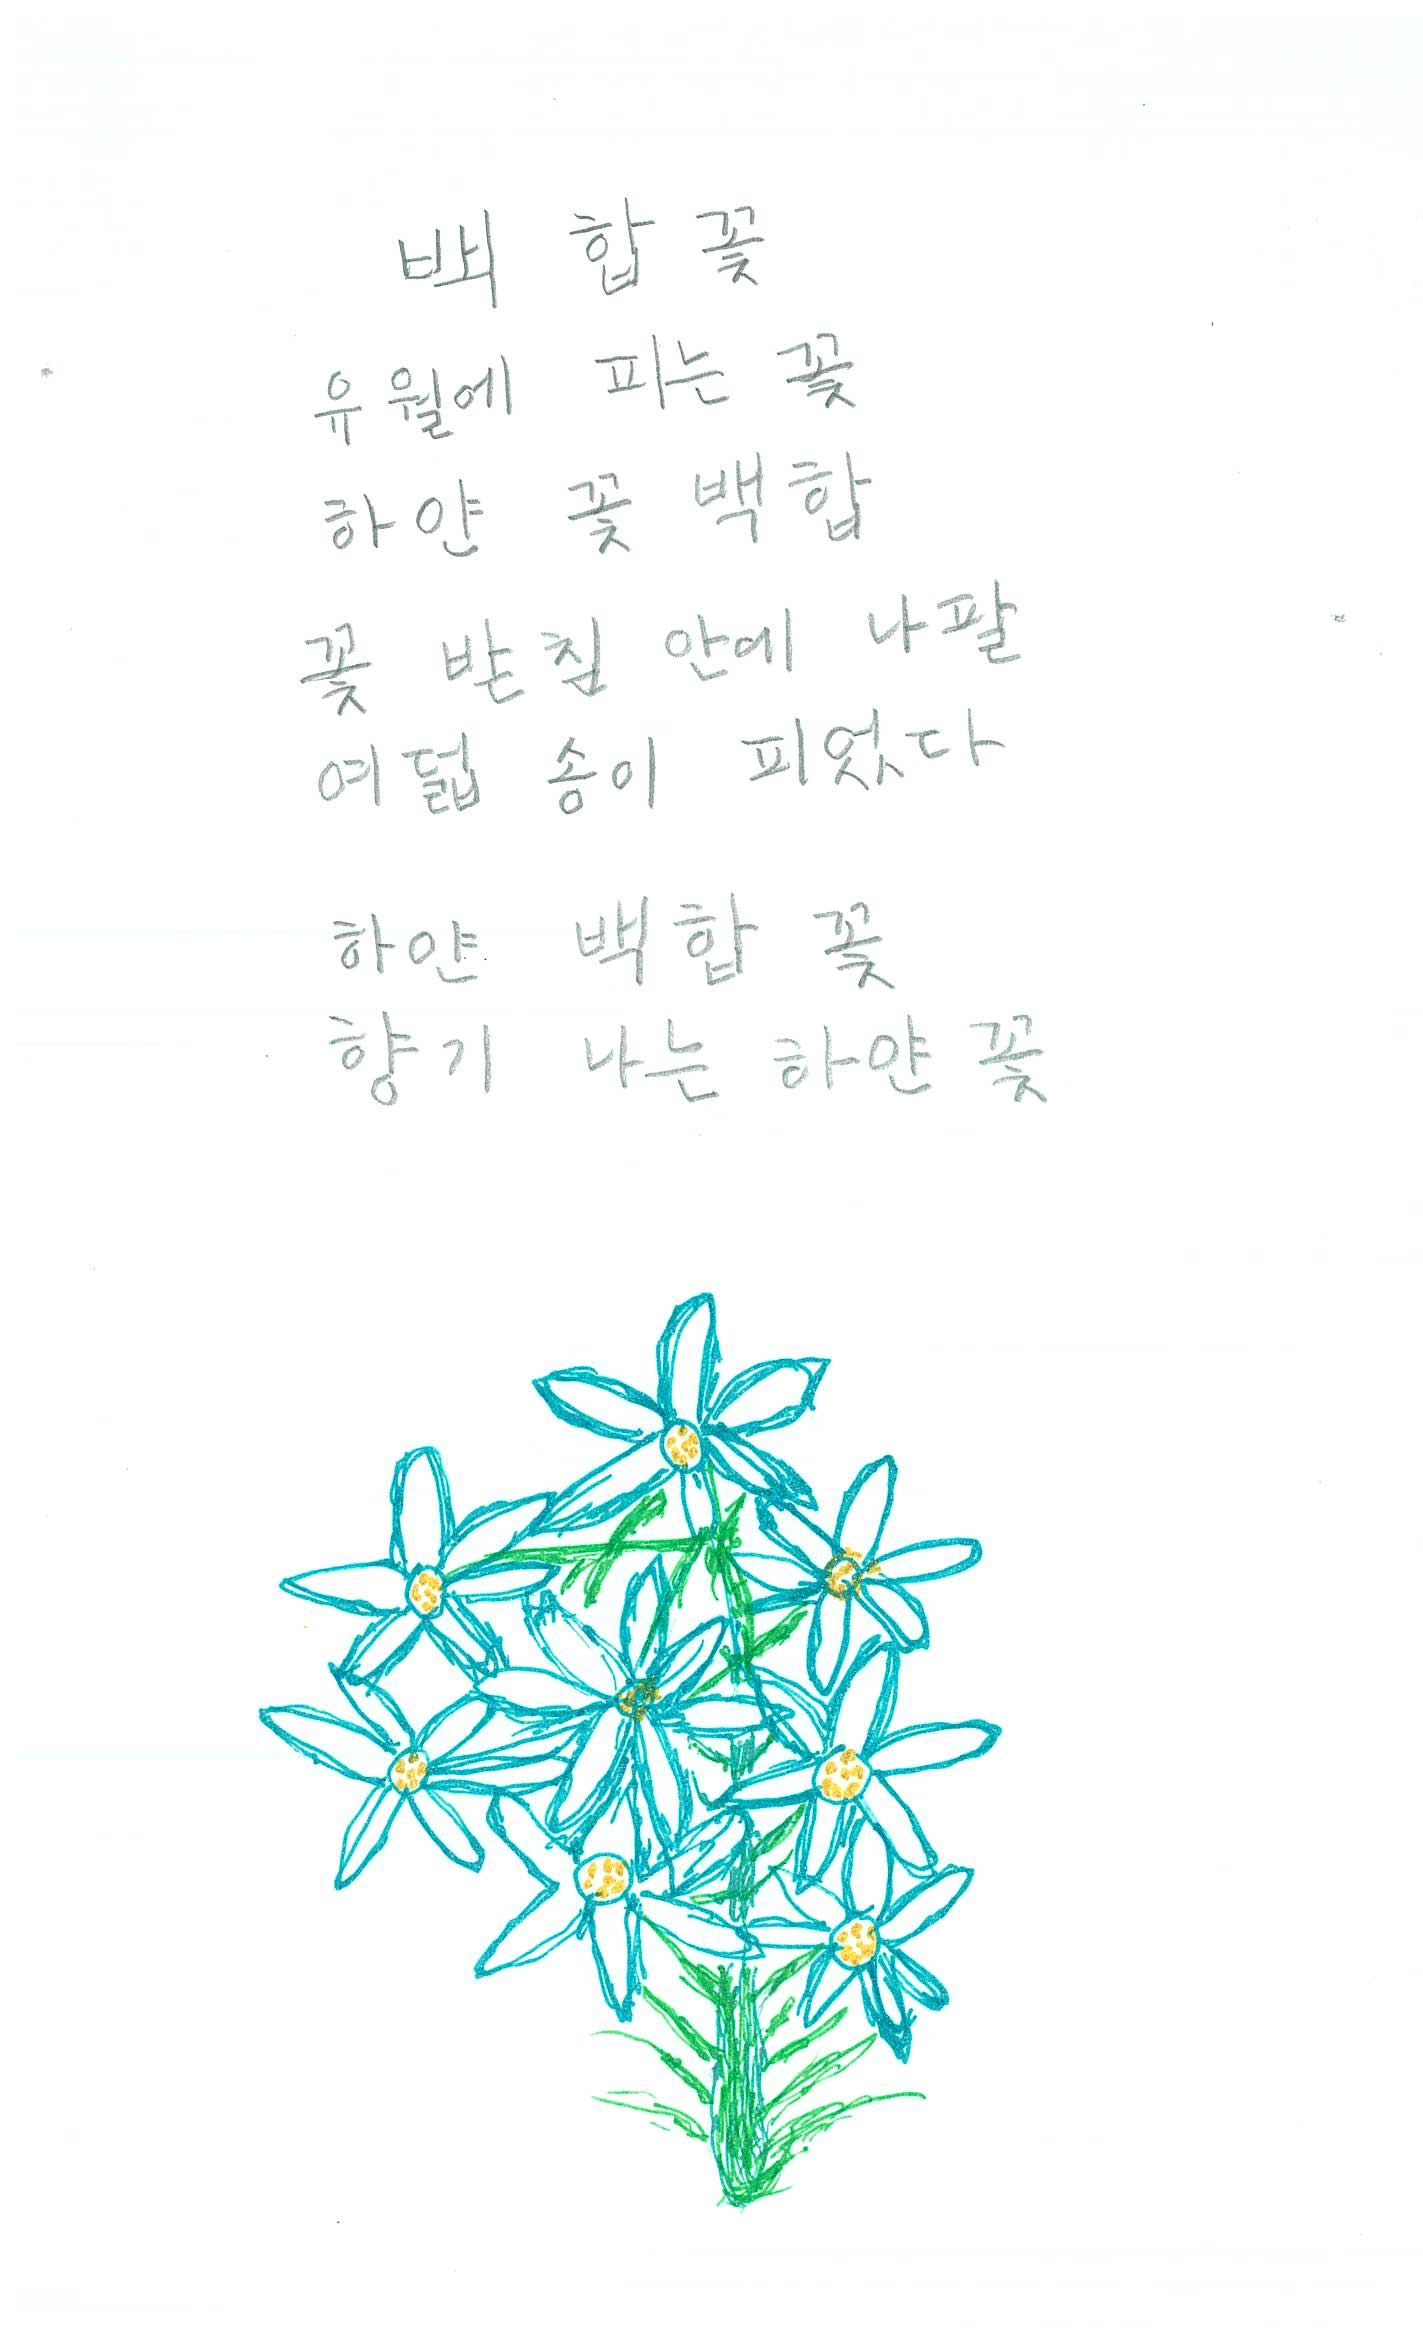 백합꽃
유월에 피는 꽃
하얀 꽃 백합
꽃 받침 안에 나팔
여덟 송이 피었다
하얀 백합 꽃
향기 나는 하얀 꽃